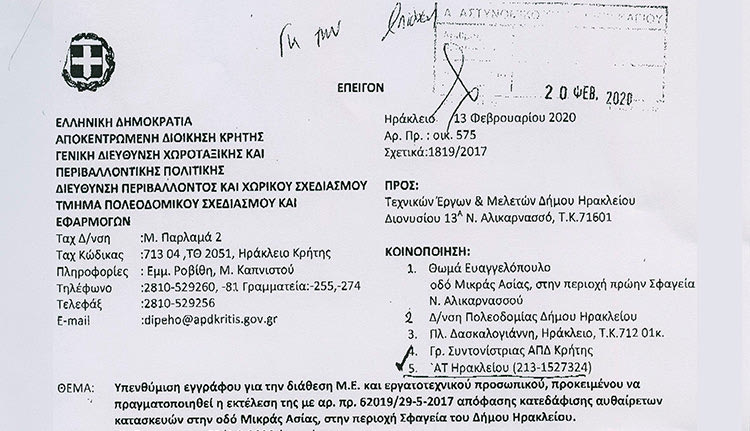 Για την
Α. ΑΣΤΥΝΟΜΙΚΟ
20 ΦΕΒ. 2020
ΕΠΕΙΓΟΝ
ΕΛΛΗΝΙΚΗ ΔΗΜΟΚΡΑΤΙΑ
ΑΠΟΚΕΝΤΡΩΜΕΝΗ ΔΙΟΙΚΗΣΗ ΚΡΗΤΗΣ
ΓΕΝΙΚΗ ΔΙΕΥΘΥΝΣΗ ΧΩΡΟΤΑΞΙΚΗΣ ΚΑΙ
ΠΕΡΙΒΑΛΛΟΝΤΙΚΗΣ ΠΟΛΙΤΙΚΗΣ
ΔΙΕΥΘΥΝΣΗ ΠΕΡΙΒΑΛΛΟΝΤΟΣ ΚΑΙ ΧΩΡΙΚΟΥ ΣΧΕΔΙΑΣΜΟΥ
ΤΜΗΜΑ ΠΟΛΕΟΔΟΜΙΚΟΥ ΣΧΕΔΙΑΣΜΟΥ ΚΑΙ
ΕΦΑΡΜΟΓΩΝ
Ταχ Δ/νση :Μ. Παρλαμά 2
Ταχ Κώδικας :713 04 ,ΤΘ 2051, Ηράκλειο Κρήτης
Πληροφορίες : Εμμ. Ροβίθη, Μ. Καπνιστού
Τηλέφωνο :2810-529260, -81 Γραμματεία:-255,-274
Τελεφάξ :2810-529256
E-mail :dipeho@apdkritis.gov.gr
Ηράκλειο 13 Φεβρουαρίου 2020
Αρ. Πρ. : οικ. 575
Σχετικά:1819/2017
ΠΡΟΣ:
Τεχνικών Έργων & Μελετών Δήμου Ηρακλείου
Διονυσίου 13Α Ν. Αλικαρνασσό, Τ.Κ.71601
ΚΟΙΝΟΠΟΙΗΣΗ:
1. Θωμά Ευαγγελόπουλο
οδό Μικράς Ασίας, στην περιοχή πρώην Σφαγεία
Ν. Αλικαρνασσού
2 Δ/νση Πολεοδομίας Δήμου Ηρακλείου
3. Πλ. Δασκαλογιάννη, Ηράκλειο, Τ.Κ.712 01κ.
4. Γρ. Συντονίστριας ΑΠΔ Κρήτης
5. ΆΤ Ηρακλείου (213-1527324)
ΘΕΜΑ: Υπενθύμιση εγγράφου για την διάθεση Μ.Ε. και εργατοτεχνικού προσωπικού, προκειμένου να
πραγματοποιηθεί η εκτέλεση της με αρ. πρ. 62019/29-5-2017 απόφασης κατεδάφισης αυθαίρετων
κατασκευών στην οδό Μικράς Ασίας, στην περιοχή Σφαγεία του Δήμου Ηρακλείου.